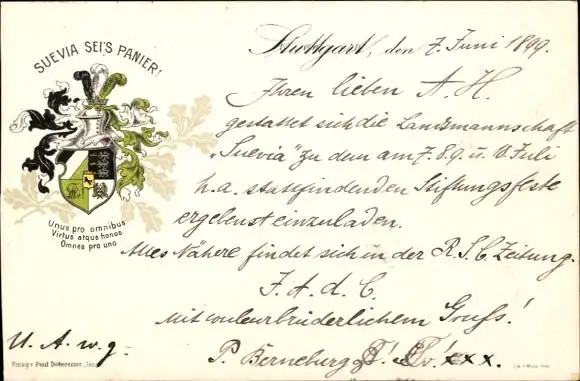 SUEVIA SEI'S PANIER!
Unus pro omnibus
Virtus atque honos
Omnes pro uno
Stuttgart, den 7. Juni 1899.
Ihren lieben A. H.
gestattet sich die Landsmannschaft
„Suevia" zu dem am 7. 8. 9. u. 10. Juli
h. a. stattfindenden Stiftungsfeste
ergebenst einzuladen.
Alles Nähere findet sich in der R. S. C. Zeitung.
J. A. d. C.
Mit couleurbrüderlichem Gruß!
U. A. w. g.
P. Berneburg xxx.
Verlag v. Paul Döbereiner, Jena